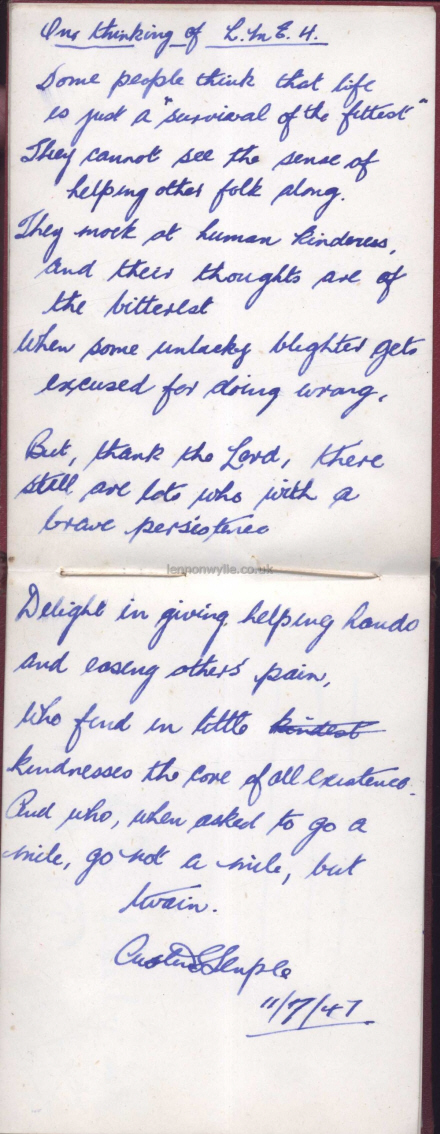 On thinking of L.M.E.H.
Some people think that life
is just a "survival of the fittest"
They cannot see the sense of
helping other folk along.
They mock at human kindness,
and their thoughts are of
the bitterest
When some unlucky blighter gets
excused for doing wrong.
But, thank the Lord, there
still are lots who with a
brave persistence
lennonwylie.co.uk
Delight in giving helping hands
and easing others' pain,
Who find in little kindest
kindnesses the core of all existence.
And who, when asked to go a
mile, go not a mile, but
twain.
11/7/47